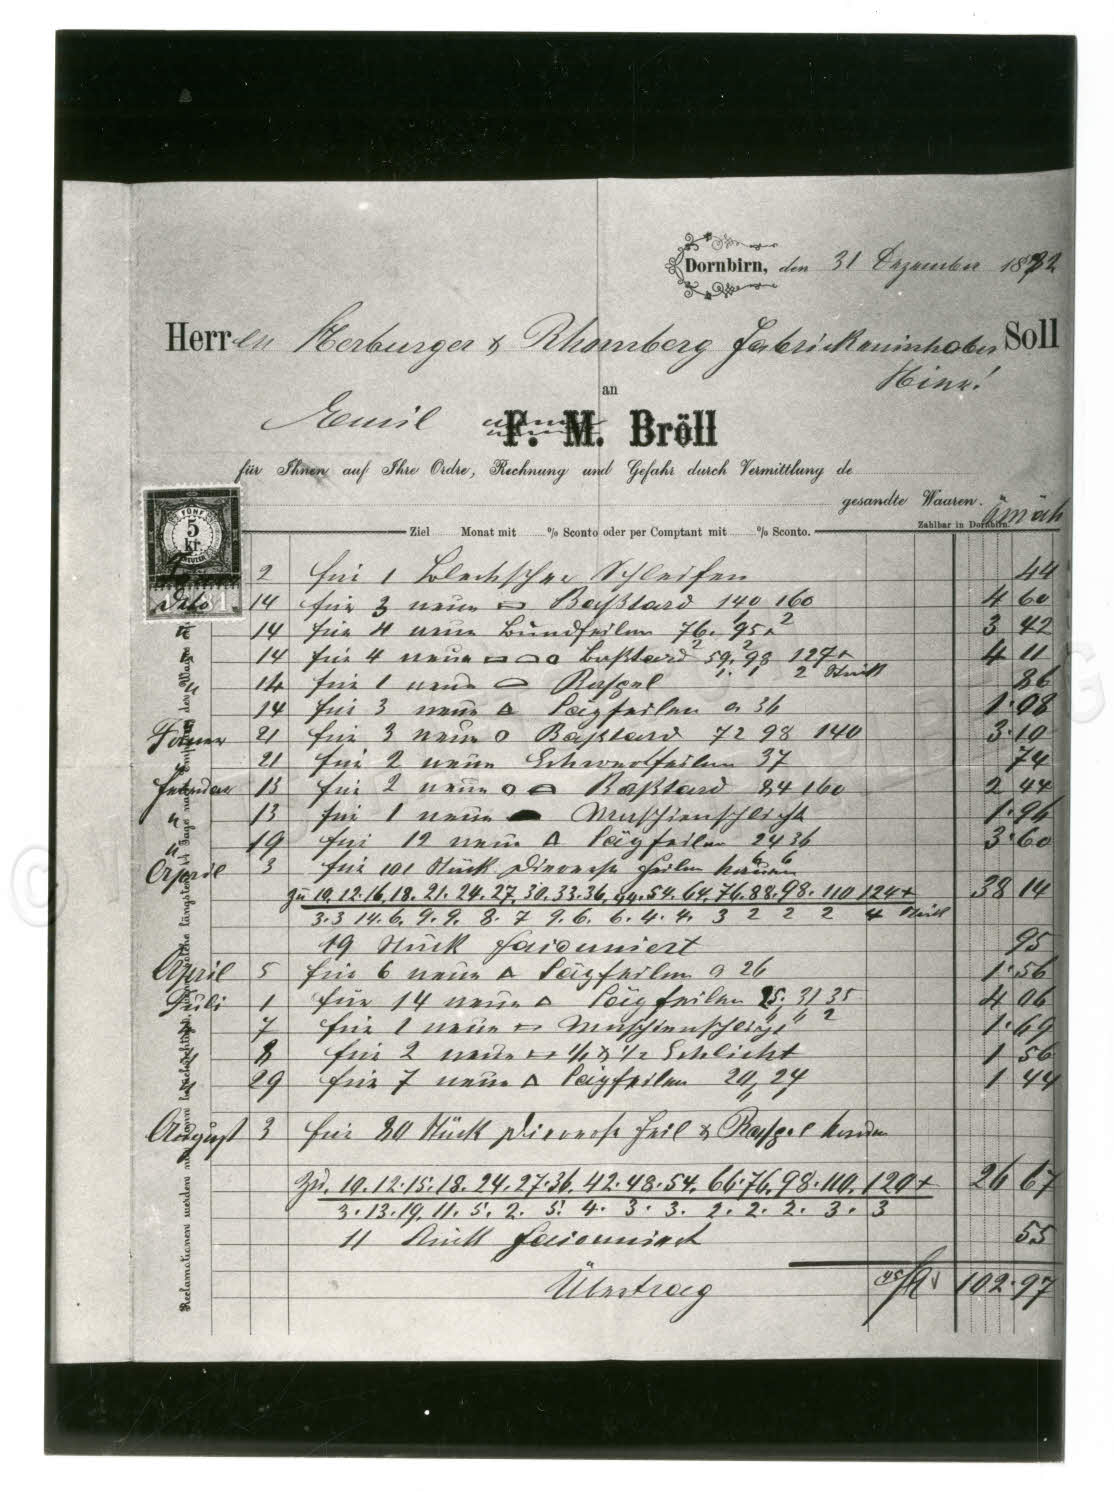 Dornbirn, den 31 Dezember 1882
Herren Herburger & Rhomberg Fabrickeninhaber Soll
Hier!
an
Emil F. M. Bröll
für Ihnen auf Ihre Ordre, Rechnung und Gefahr durch Vermittlung de
gesandte Waaren.
Zahlbar in Dornbirn.
Ziel Monat mit % Sconto oder per Comptant mit % Sconto.
FÜNF
5
kr.
2 für 1 Blechscher Schleifen 44
dato 14 für 3 neue Baßtard 140 160 4 60
" 14 für 4 neue Bundfeilen 76. 95 3 42
" 14 für 4 neue Baßtard 59. 98 127+ 4 11
1. 1 2 Stück
" 14 für 1 neue Raspel 86
14 für 3 neue Δ Sägfeilen a 36 1·08
Jänner 21 für 3 neue o Baßtard 72 98 140 3·10
" 21 für 2 neue Schwertfeilen 37 74
Februar 13 für 2 neue Baßtard 84 160 2 44
" 13 für 1 neue Maschienschlicht 1·96
" 19 für 12 neue Δ Sägfeilen 24 36 3·60
6 6
April 3 für 101 Stück Diverse Feilen hauen
zu 10.12.16.18.21.24.27.30.33.36.44.54.64.76.88.98.110 124+ 38 14
3.3 14.6.9.9.8.7 9.6.6.4.4.3 2 2 2 4 Stück
19 Stück faconniert 95
April 5 für 6 neue Δ Sägfeilen a 26 1·56
Juli 1 für 14 neue Δ Sägfeilen 25. 31 35 4 06
" 7 für 1 neue Maschienschlicht 1·69
" 8 für 2 neue Schlicht 1 56
" 29 für 7 neue Δ Sägfeilen 20, 24 1 44
August 3 für 80 Stück Diverse Feil & Raspel hauen
zu. 10.12.15.18.24.27.36.42.48.54.66.76.98.110.120+ 26 67
3.13.19.11.5.2.5.4.3.3.2.2.2.3.3
11 Stück faconniert 55
Übertrag 102·97